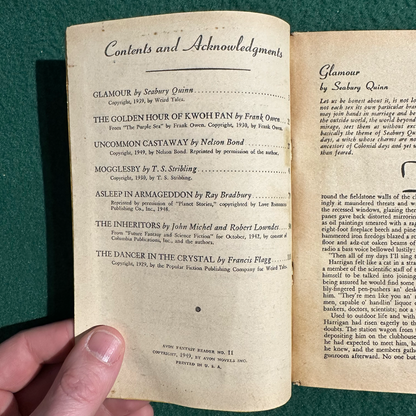 Contents and Acknowledgments
GLAMOUR by Seabury Quinn
Copyright, 1939, by Weird Tales.
THE GOLDEN HOUR OF KWOH FAN by Frank Owen
From "The Purple Sea" by Frank Owen. Copyright, 1930, by Frank Owen.
UNCOMMON CASTAWAY by Nelson Bond
Copyright, 1949, by Nelson Bond. Reprinted by permission of the author.
MOGGLESBY by T. S. Stribling
Copyright, 1930, by T. S. Stribling.
ASLEEP IN ARMAGEDDON by Ray Bradbury
Reprinted by permission of "Planet Stories," copyrighted by Love Romances
Publishing Co., Inc., 1948.
THE INHERITORS by John Michel and Robert Lowndes
From "Future Fantasy and Science Fiction" for October, 1942, by consent of
Columbia Publications, Inc., and the authors.
THE DANCER IN THE CRYSTAL by Francis Flagg
Copyright, 1929, by the Popular Fiction Publishing Company for Weird Tales.
AVON FANTASY READER NO. 11
COPYRIGHT, 1949, BY AVON NOVELS INC.
PRINTED IN U. S. A.
Glamour
by Seabury Quinn
Let us be honest about it, is not
not each sex its own particular bran
may join hands in marriage and be
the outside world, the world beyond
mirage, sees them as without
basically the theme of Seabury Q
days, a witch whose charms are no
ancestors of Colonial days and yet
than feared.
round the fieldstone walls of the
ingly it maundered threats and
the recessed windows, glazing the
panes gave back distorted
as oil paintings smeared with a
eight-foot fireplace beech and pine
hammered iron firedogs blazed a
floor and adz-cut oaken beams of
radio a bass voice bellowed lustily:
"Then all of my days I'll sing
Harrigan felt like a cat in a stra
a member of the scientific staff of
himself to be talked into joining
being assured he would find some
lily-fingered pen-pushers an' desk
him. "They're men like you an'
men, capable o' handlin' liquor
bankers, doctors, scientists; not a
Used to outdoor life and with
Harrigan had risen eagerly to the
doubts. The station wagon from
depositing him on the clubhouse
he had expected to meet him, he
he knew, and the members gathe
gunroom afterward. No one but